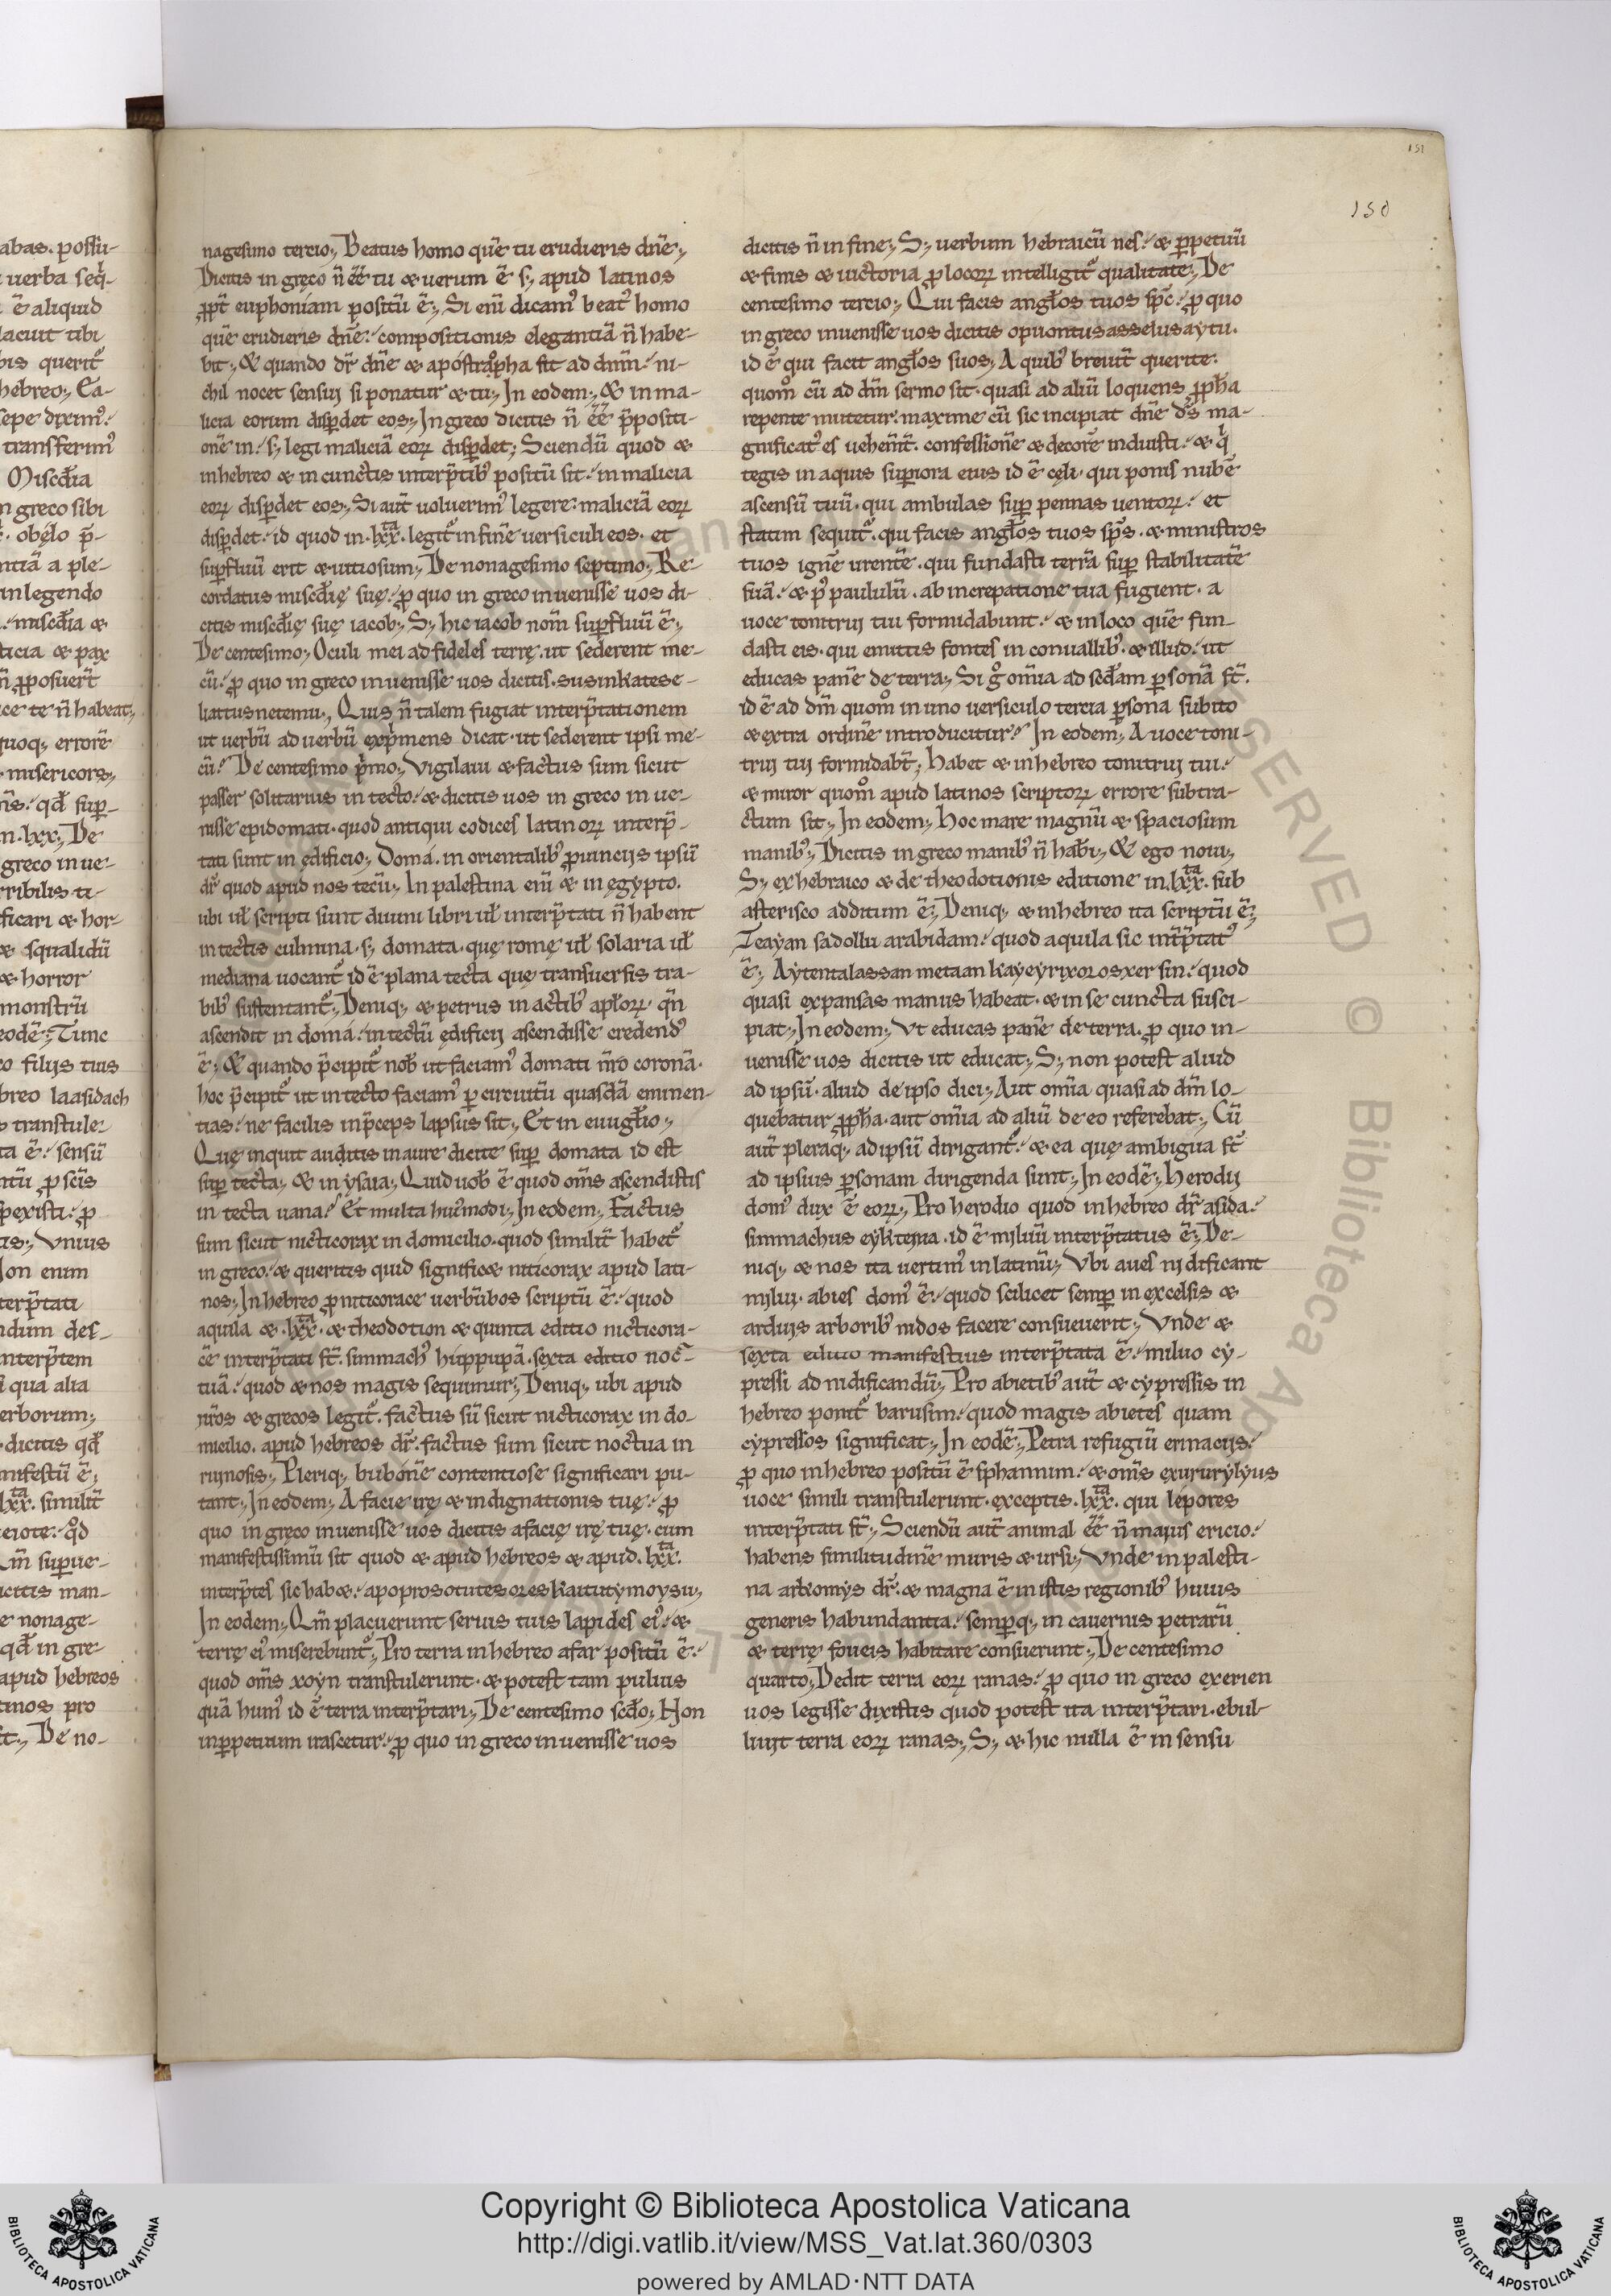 151
150
nagesimo tercio; Beatus homo quē tu erudieris dñe;
Dicitis in gręco ñ eē tu & uerum ē s; apud latinos
ꝓpt euphoniam positū ē; Si enī dicam' beat' homo
quē erudieris dñe. compositionis elegantiā ñ habe-
bit; & quando dr̄ dñe & apostropha fit ad dnm̄. ni-
chil nocet sensui si ponatur & tu; In eodem; & in ma-
licia eorum disꝑdet eos; In greco dicitis ñ eē p̄positi-
onē in. s; legi maliciā eoꝝ disꝑdet; Sciendū quod &
in hebreo & in cunctis interp̄tib' positū sit. in malicia
eoꝝ disꝑdet eos; Si aut̄ uoluerim' legere. maliciā eoꝝ
disꝑdet. id quod in .lxxta. legit in finē uersiculi eos. et
suꝑfluū erit & uitiosum; De nonagesimo septimo; Re-
cordatus misc̄dię suę. ꝓ quo in greco inuenisse uos di-
citis misc̄dię suę iacob; S; hic iacob nom̄ suꝑfluū ē;
De centesimo; Oculi mei ad fideles terrę. ut sederent me-
cū. ꝓ quo in greco inuenisse uos dicitis. susinkatese-
liattusnetemu; Quis ñ talem fugiat interp̄tationem
ut uerbū ad uerbū exp̄mens dicat. ut sederent ipsi me-
cū. De centesimo p̄mo; Vigilaui & factus sum sicut
passer solitarius in tecto. & dicitis uos in greco inue-
nisse epidomati. quod antiqui codices latinoꝝ interp̄-
tati sunt in ędificio; Doma. in orientalib' ꝓuincijs ipsū
dr̄ quod apud nos tectū; In palestina enī & in ęgypto.
ubi ul̄ scripti sunt diuini libri ul̄ interp̄tati ñ habent
in tectis culmina. s; domata. quę romę ul̄ solaria ul̄
mediana uocant id ē plana tecta quę transuersis tra-
bib' sustentant; Deniq; & petrus in actib' apl̄oꝝ qn̄
ascendit in doma. in tectū ędificij ascendisse credend'
ē; & quando p̄cipit nob̄ ut faciam' domati nr̄o coronā.
hoc p̄cipit ut in tecto faciam' ꝑ circuitū quasdā eminen-
tias. ne facilis in p̄ceps lapsus sit; Et in euugl̄io;
Quę inquit auditis in aure dicite suꝑ domata id est
suꝑ tecta; & in ysaia; Quid uob̄ ē quod om̄s ascendistis
in tecta uana. Et multa hui'modi; In eodem; Factus
sum sicut nicticorax in domicilio. quod similit̄ habet
in greco. & queritis quid significæ niticorax apud lati-
nos; In hebreo ꝓ niticorace uerbū bos scriptū ē. quod
aquila & .lxxta. & theodotion & quinta editio nicticora-
cē interp̄tati st̄. simmach' huppupā. sexta editio noc-
tuā. quod & nos magis sequimur; Deniq; ubi apud
nr̄os & grecos legit. factus sū sicut nicticorax in do-
micilio. apud hebreos dr̄. factus sum sicut noctua in
ruinosis; Pleriq; bubonē contentiose significari pu-
tant; In eodem; A facie irę & indignationis tuę. ꝓ
quo in gręco inuenisse uos dicitis a facię irę tuę. cum
manifestissimū sit quod & apud hebreos & apud .lxxta.
interp̄tes sic habæ. apoprosotutesoreskaitutymoysu;
In eodem; Qm̄ placuerunt seruis tuis lapides ei'. &
terrę ei' miserebunt; Pro terra in hebreo afar positū ē.
quod om̄s xoyn transtulerunt. & potest tam puluis
quā hum' id ē terra interp̄tari; De centesimo sc̄do; Non
inꝑpetuum irascetur. ꝓ quo in greco inuenisse uos
dicitis ñ in fine; S; uerbum hebraicū nes. & ꝑpetuū
& finis & uictoria ꝓ locoꝝ intelligit qualitate; De
centesimo tercio; Qui facis angl̄os tuos spc̄. ꝓ quo
in greco inuenisse uos dicitis opuontusasselusaytu.
id ē qui facit angl̄os suos; A quib' breuit̄ querite.
quom̊ cū ad dm̄ sermo sit. quasi ad aliū loquens ꝓph̄a
repente mutetur. maxime cū sic incipiat dñe ds̄ ma-
gnificat' es uehem̄t̄. confessionē & decorē induisti. & q
tegis in aquis suꝑiora eius id ē cęli. qui ponis nubē
ascensū tuū. qui ambulas suꝑ pennas uentoꝝ. et
statim sequit. qui facis angl̄os tuos sps̄. & ministros
tuos ignē urentē. qui fundasti terrā suꝑ stabilitatē
suā. & p' paululū. ab increpatione tua fugient. a
uoce tonitrui tui formidabunt. & in loco quē fun-
dasti eis. qui emittis fontes in conuallib'. & illud. ut
educas panē de terra; Si g̊ om̄ia ad sc̄dam ꝑsonā st̄.
id ē ad dm̄ quom̊ in uno uersiculo tercia ꝑsona subito
& extra ordinē introducitur. In eodem; A uoce toni-
trui tui formidabt̄; Habet & in hebreo tonitrui tui.
& miror quom̊ apud latinos scriptoꝝ errore subtra-
ctum sit; In eodem; Hoc mare magnū & spaciosum
manib'; Dicitis in greco manib' ñ hab̄i; & ego noui;
S; ex hebraico & de theodotionis editione in .lxxta. sub
asterisco additum ē; Deniq; & in hebreo ita scriptū ē;
Zeayan sadollu arabidam. quod aquila sic int̄p̄tat'
ē; Aytentalassan metaan kayeyrixorosxer sin. quod
quasi expansas manus habeat. & in se cuncta susci-
piat; In eodem; Vt educas panē de terra. ꝓ quo in-
uenisse uos dicitis ut educat; S; non potest aliud
ad ipsū. aliud de ipso dici; Aut om̄ia quasi ad dm̄ lo-
quebatur ꝓph̄a. aut om̄ia ad aliū de eo referebat; Cū
aut̄ pleraq; ad ipsū dirigant. & ea quę ambigua st̄
ad ipsius ꝑsonam dirigenda sunt; In eodē; Herodij
dom' dux ē eoꝝ; Pro herodio quod in hebreo dr̄ asida.
simmachus eyktina. id ē miluū interp̄tatus ē; De-
niq; & nos ita uertim' in latinū; Vbi aues nidificant
milui. abies dom' ē. quod scilicet semꝑ in excelsis &
arduis arborib' nidos facere consueuerit; Vnde &
sexta editio manifestius interp̄tata ē. miluo cy-
pressi ad nidificandū; Pro abietib' aut̄ & cypressis in
hebreo ponit barusim. quod magis abietes quam
cypressos significat; In eodē; Petra refugiū erinacijs.
ꝓ quo in hebreo positū ē sphannim. & om̄s exururylyus
uoce simili transtulerunt. exceptis .lxxta. qui lepores
interp̄tati st̄; Sciendū aut̄ animal eē ñ maius ericio.
habens similitudinē muris & ursi; Vnde in palesti-
na arkomys dr̄. & magna ē in istis regionib' huius
generis habundantia. semꝑq; in cauernis petrarū
& terrę foueis habitare consuerunt; De centesimo
quarto; Dedit terra eoꝝ ranas. ꝓ quo in greco exerien
uos legisse dixistis quod potest ita interp̄tari. ebul-
liuit terra eoꝝ ranas; S; & hic nulla ē in sensu
Copyright © Biblioteca Apostolica Vaticana
http://digi.vatlib.it/view/MSS_Vat.lat.360/0303
powered by AMLAD·NTT DATA
BIBLIOTECA APOSTOLICA VATICANA
BIBLIOTECA APOSTOLICA VATICANA